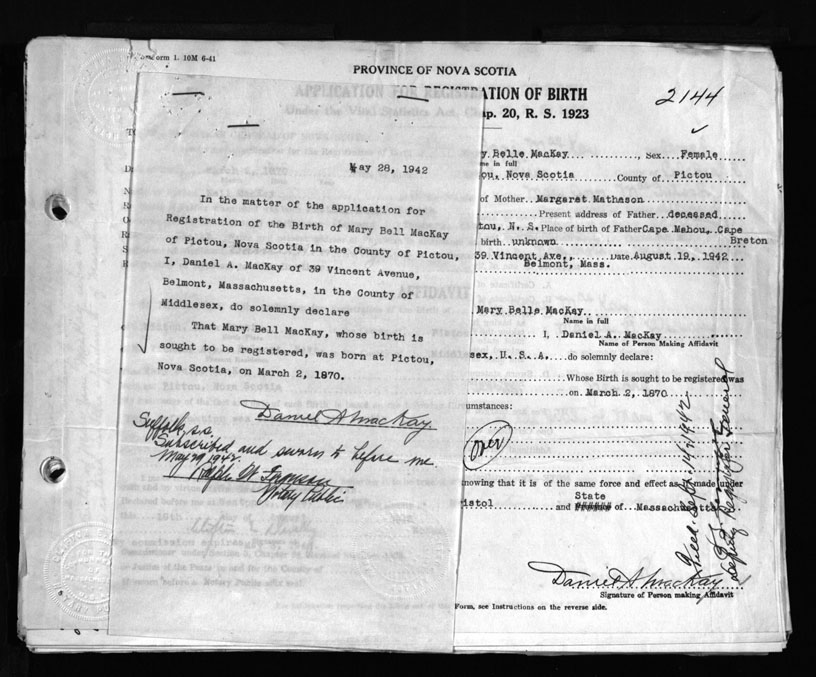 Form 1. 10M 6-41
PROVINCE OF NOVA SCOTIA
APPLICATION FOR REGISTRATION OF BIRTH
ap. 20, R. S. 1923
2144
May 28, 1942
In the matter of the application for
Registration of the Birth of Mary Bell MacKay
of Pictou, Nova Scotia in the County of Pictou,
I, Daniel A. MacKay of 39 Vincent Avenue,
Belmont, Massachusetts, in the County of
Middlesex, do solemnly declare
That Mary Bell MacKay, whose birth is
sought to be registered, was born at Pictou,
Nova Scotia, on March 2, 1870.
Daniel A MacKay
Suffolk, s.s.
Subscribed and sworn to before me
May 29, 1942
Ralph W
ry Belle MacKay, Sex Female
me in full
ou, Nova Scotia County of Pictou
of Mother Margaret Matheson
Present address of Father deceased
tou, N. S. Place of birth of Father Cape Mabou, Cape
birth unknown Breton
39 Vincent Ave., Date August 19, 1942
Belmont, Mass.
AFFIDAVIT
Mary Belle MacKay
Name in full
I, Daniel A. MacKay
Name of Person Making Affidavit
sex, U. S. A. do solemnly declare:
Whose Birth is sought to be registered was
on March 2, 1870
cumstances:
Over
nowing that it is of the same force and effect as if made under
State
istol and of Massachusetts
Daniel A MacKay
Signature of Person making Affidavit
Form, see Instructions on the reverse side.
Filed. Sept. 14, 1942
Deputy Registrar General